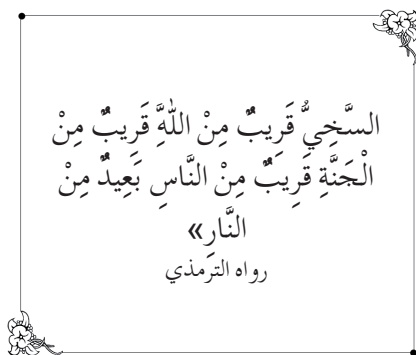 السَّخِيُّ قَرِيبٌ مِنْ اللهَِّ قَرِيبٌ مِنْ
الْجَنَّةِ قَرِيبٌ مِنْ النَّاسِ بَعِيدٌ مِنْ
النَّارِ»
رواه الترمذي